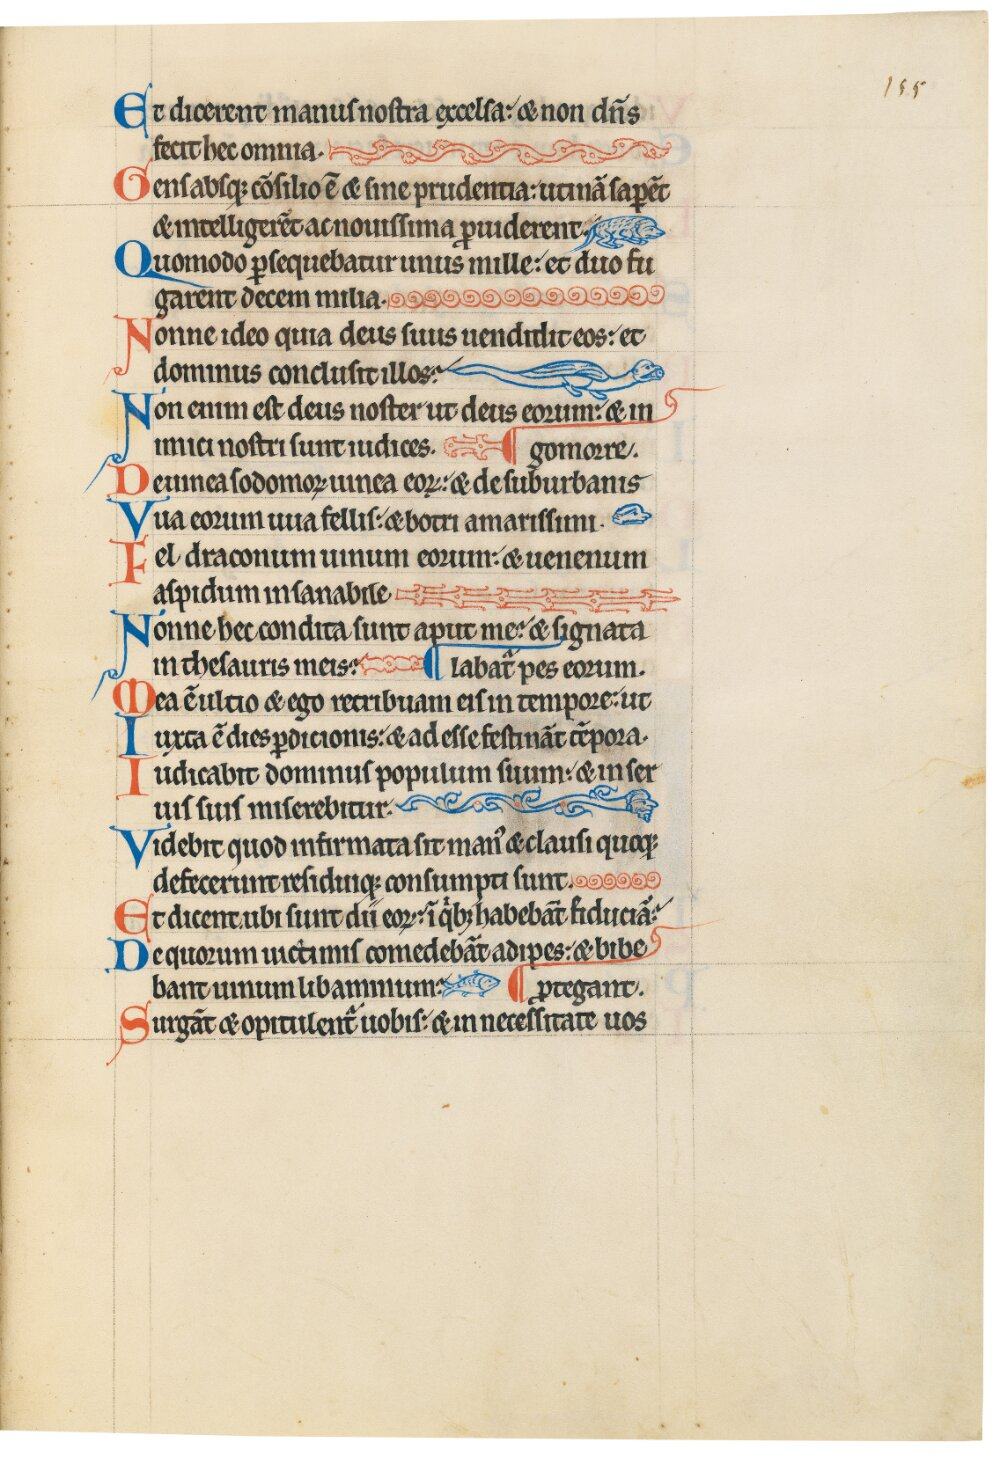 155
Et dicerent manus nostra excelsa: & non dn̄s
fecit hec omnia.
Gens absq; cōsilio ē & sine prudentia: utinā saperēt
& intelligerēt ac nouissima ꝓuiderent.
Quomodo ꝑsequebatur unus mille: et duo fu
garent decem milia.
Nonne ideo quia deus suus uendidit eos: et
dominus conclusit illos:
Non enim est deus noster ut deus eorum: & in
imici nostri sunt iudices. gomorre.
De uinea sodomoꝝ uinea eoꝝ: & de suburbanis
Vua eorum uua fellis: & botri amarissimi.
Fel draconum uinum eorum: & uenenum
aspidum insanabile
Nonne hec condita sunt aput me: & signata
in thesauris meis: labat᷑ pes eorum.
Mea ē ultio & ego retribuam eis in tempore: ut
Iuxta ē dies ꝑdicionis: & adesse festināt tēpora.
Iudicabit dominus populum suum: & in ser
uis suis miserebitur.
Videbit quod infirmata sit manꝰ & clausi quoq;
defecerunt residuiq; consumpti sunt.
Et dicent, ubi sunt dii eoꝝ: ī qͥbꝫ habebāt fiduciā:
De quorum uictimis comedebāt adipes: & bibe
bant uinum libaminum: ꝓtegant.
Surgāt & opitulent᷑ uobis: & in necessitate uos